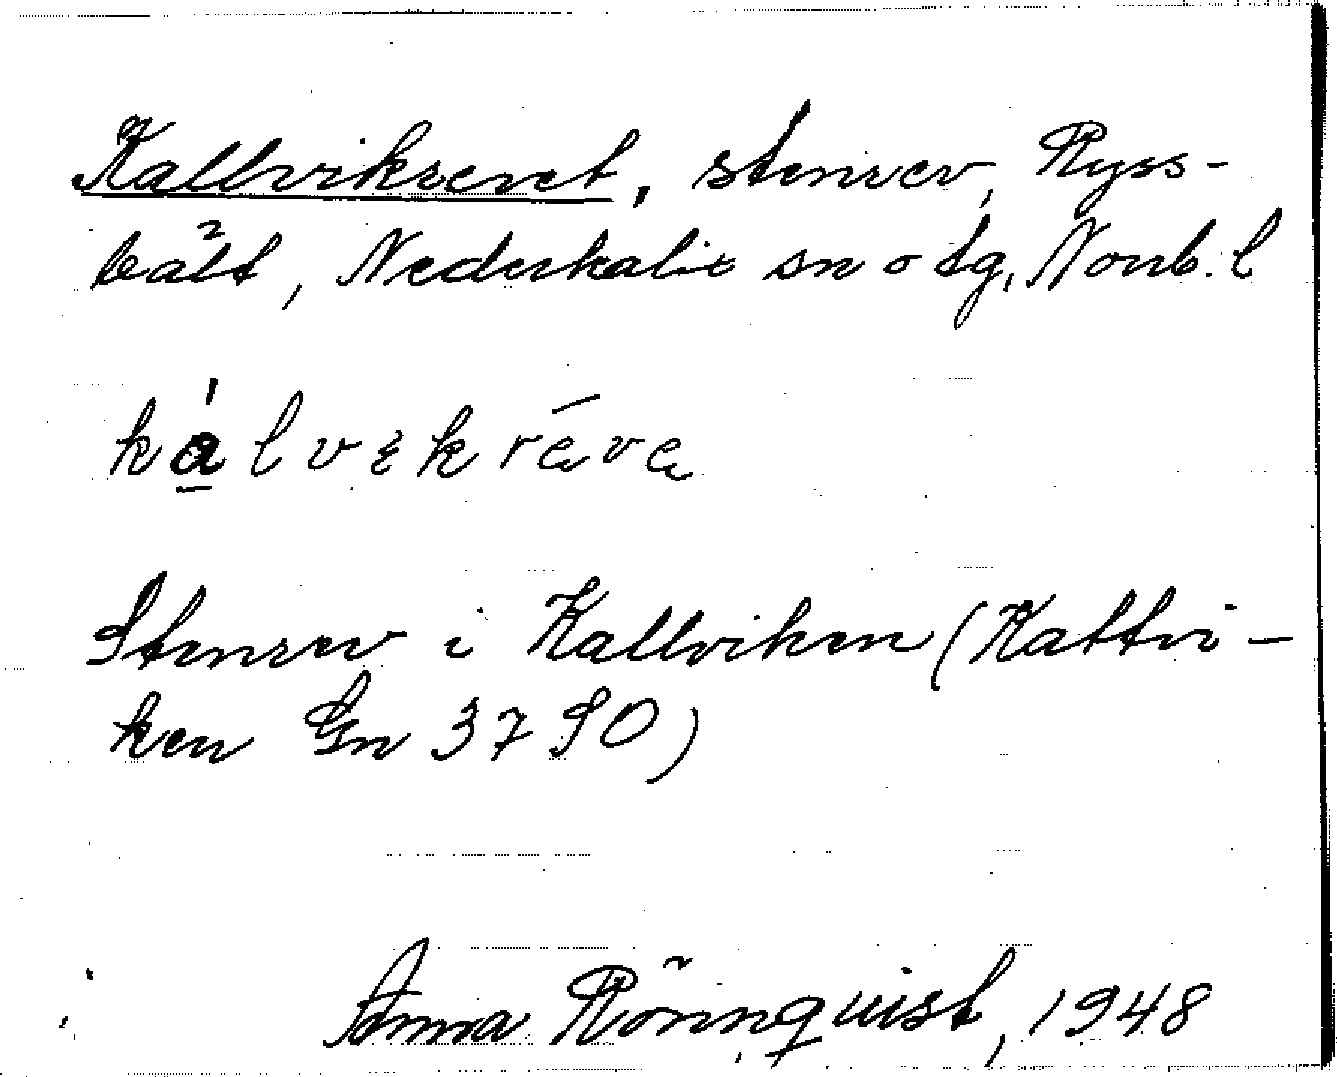 Kallviksrevet, stenrev, Ryss-
bält, Nederkalix sn o tg, Norrb. l
kálvikrēva
Stenrev i Kallviken (Kattvi-
ken Gn 3790)
Anna Rönnquist, 1948